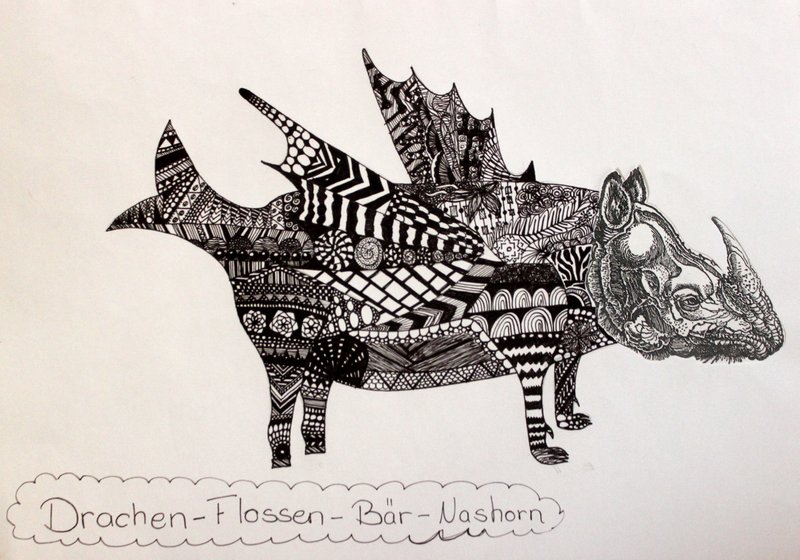 Drachen-Flossen-Bär-Nashorn